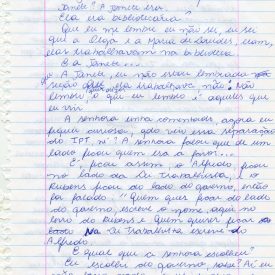 Janete? A Janete era.
Ela era bibliotecária?
Que eu me lembre eu não sei, eu sei
que a Olga e a Maria de Lourdes, eram,
elas trabalhavam na biblioteca
E a Janete...
A Janete, eu não estou lembrada
seção ela trabalhava não. Não
lembro o que eu lembro é aqueles que
eu vi.
A senhora tinha comentado, agora eu
fiquei curiosa, qdo veio essa separação
do IPT, né? A senhora falou que de um
lado ficou quem era a favor...
É, ficou assim o Alfredo, ficou
no lado da Lei Trabalhista, e
Rubens ficou do lado do governo, então
foi falado: "Quem quer ficar do lado
do governo, escreve o nome aqui no
livro do Rubens e quem quiser ficar
na Lei Trabalhista escreve do
Alfredo.
E qual que a senhora escolheu?
Eu escolhi do governo, sabe? Aí eu